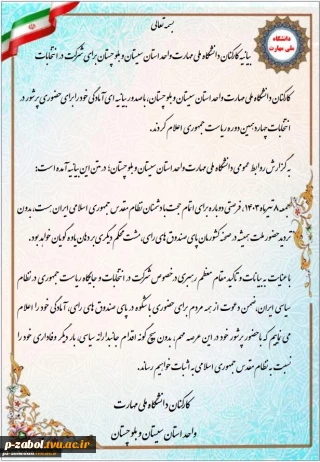 بسمه تعالی
دانشگاه
ملی مهارت
بیانیه کارکنان دانشگاه ملی مهارت واحد استان سیستان و بلوچستان برای شرکت در انتخابات
کارکنان دانشگاه ملی مهارت واحد استان سیستان و بلوچستان، با صدور بیانیه ای آمادگی خود را برای حضوری پرشور در
انتخابات چهاردهمین دوره ریاست جمهوری اعلام کردند.
به گزارش روابط عمومی دانشگاه ملی مهارت واحد استان سیستان و بلوچستان؛ در متن این بیانیه آمده است:
جمعه ۸ تیرماه ۱۴۰۳، فرصتی دوباره برای اتمام حجت با دشمنان نظام مقدس جمهوری اسلامی ایران هست، بدون
تردید حضور ملت همیشه در صحنه کشورمان پای صندوق های رای، مشت محکم دیگری بر دهان یاوه گویان خواهد بود.
با عنایت به بیانات و تاکید مقام معظم رهبری در خصوص شرکت در انتخابات و جایگاه ریاست جمهوری در نظام
سیاسی ایران، ضمن دعوت از همه مردم برای حضوری با شکوه در پای صندوق های رای، آمادگی خود را اعلام
می نماییم که با حضور پرشور خود در این عرصه مهم، بدون هیچ گونه اقدام جانبدارانه سیاسی، بار دیگر وفاداری خود را
نسبت به نظام مقدس جمهوری اسلامی به اثبات خواهیم رساند.
کارکنان دانشگاه ملی مهارت
واحد استان سیستان و بلوچستان
p-zabol.tvu.ac.ir